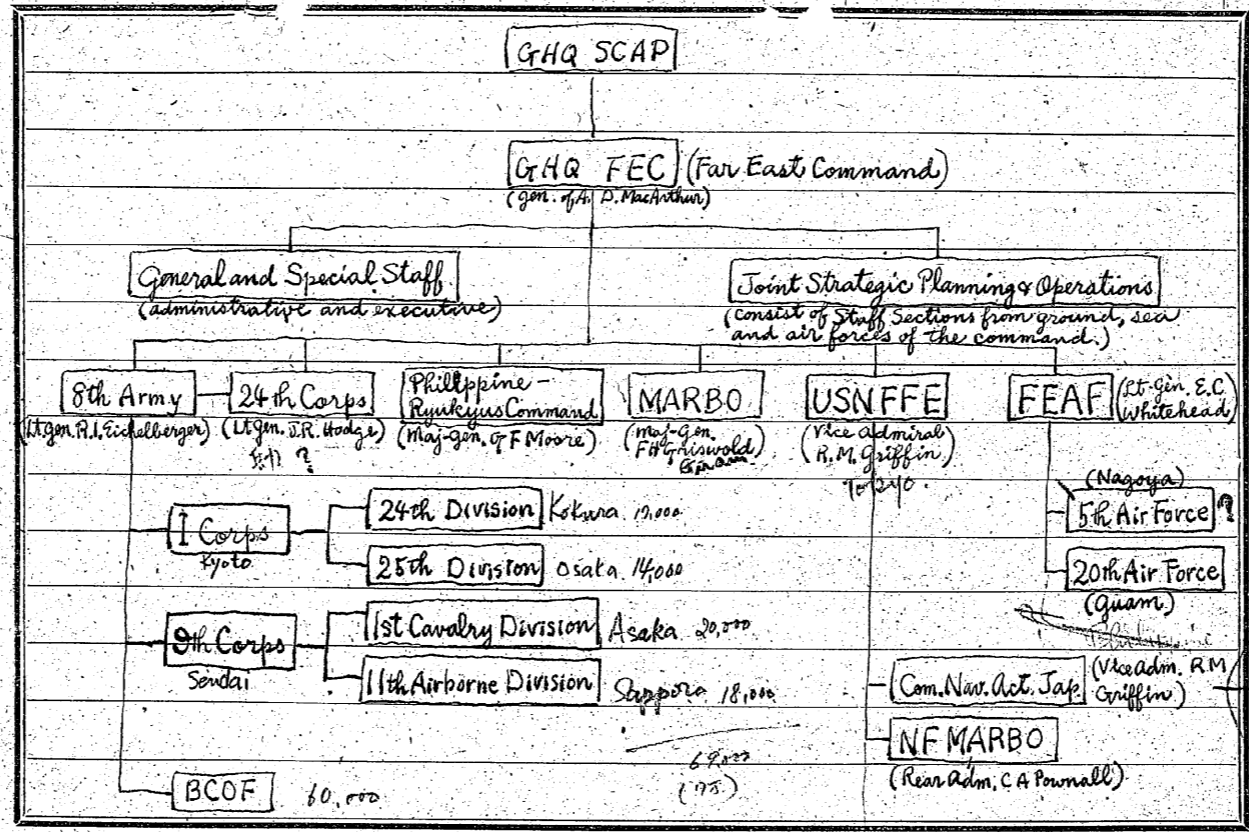 GHQ SCAP
GHQ FEC (Far East Command)
(Gen. of A. D. MacArthur)
General and Special Staff
(administrative and executive)
Joint Strategic Planning & Operations
(consist of Staff Sections from ground, sea
and air forces of the command.)
8th Army
(Lt gen. R.L. Eichelberger)
24th Corps
(Lt gen. J.R. Hodge)
?
Philippine-
Ryukyus Command
(Maj-gen. G F Moore)
MARBO
(Maj-Gen.
F H Griswold)
Guam
USNFFE
(Vice admiral
R.M. Griffin.)
Tokyo.
FEAF (Lt-Gen. E.C.
Whitehead)
(Nagoya)
5th Air Force ?
20th Air Force
(Guam.)
I Corps
Kyoto
24th Division Kokura
25th Division Osaka 14,000
9th Corps
Sendai
1st Cavalry Division Asaka 20,000
11th Airborne Division Sapporo 18,000
69,000
BCOF 60,000
Com. Nav. Act. Jap. (Vice adm. R.M.
Griffin.)
NF MARBO
(Rear adm. C A Pownall)